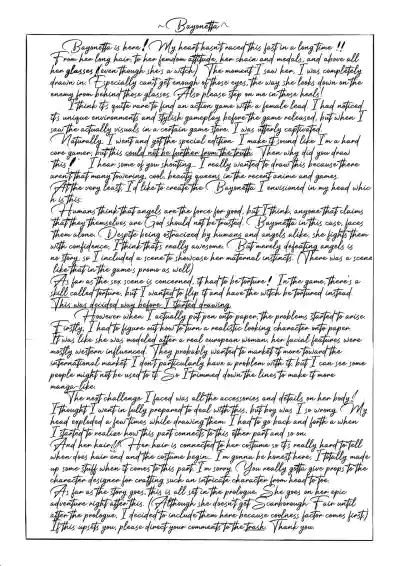 ~ Bayonetta ~
Bayonetta is here! My heart hasn't raced this fast in a long time!!
From her long hair, to her femdom attitude, her chain and medals, and above all
her glasses! (even though she's a witch) The moment I saw her, I was completely
drawn in. Especially can't get enough of those eyes, the way she looks down on the
enemy from behind those glasses. Also please step on me in those heels!
I think it's quite rare to find an action game with a female lead. I had noticed
it's unique environments and stylish gameplay before the game released, but when I
saw the actually visuals in a certain game store, I was utterly captivated.
Naturally, I went and got the special edition. I make it sound like I'm a hard
core gamer, but this could not be further from the truth. Then why did you draw
this!" I hear some of you shouting. I really wanted to draw this because there
aren't that many towering, cool, beauty queens in the recent anime and games.
At the very least, I'd like to create the Bayonetta I envisioned in my head whic
h is this:
Humans think that angels are the force for good, but I think, anyone that claims
that they themselves are God should not be trusted. Bayonetta in this case, faces
them alone. Despite being ostracized by humans and angels alike, she fights them
with confidence, I think that's really awesome. But merely defeating angels is
no story, so I included a scene to showcase her maternal instincts. (There was a scene
like that in the game's promo as well)
As far as the sex scene is concerned, it had to be torture! In the game, there's a
skill called torture, but I wanted to flip it and have the witch be tortured instead.
This was decided way before I started drawing.
However when I actually put pen onto paper, the problems started to arise.
Firstly, I had to figure out how to turn a realistic looking character onto paper.
It was like she was modeled after a real european woman, her facial features were
mostly western influenced. They probably wanted to market it more toward the
international market. I don't particularly have a problem with it, but I can see some
people might not be used to it. So I trimmed down the lines to make it more
manga-like.
The next challenge I faced was all the accessories and details on her body!
I thought I went in fully prepared to deal with this, but boy was I so wrong. My
head exploded a few times while drawing them. I had to go back and forth a when
I started to realize how this part connects to this other part and so on.
And her hair!!! Her hair is connected to her costume so it's really hard to tell
when does hair end and the costume begin. I'm gonna be honest here, I totally made
up some stuff when it comes to this part. I'm sorry. You really gotta give props to the
character designer for crafting such an intricate character from head to toe.
As far as the story goes, this is all set in the prologue. She goes on her epic
adventure right after this. (Although she doesn't get Scarborough Fair until
after the prologue, I decided to include them here because coolness factor comes first)
If this upsets you, please direct your comments to the trash. Thank you.